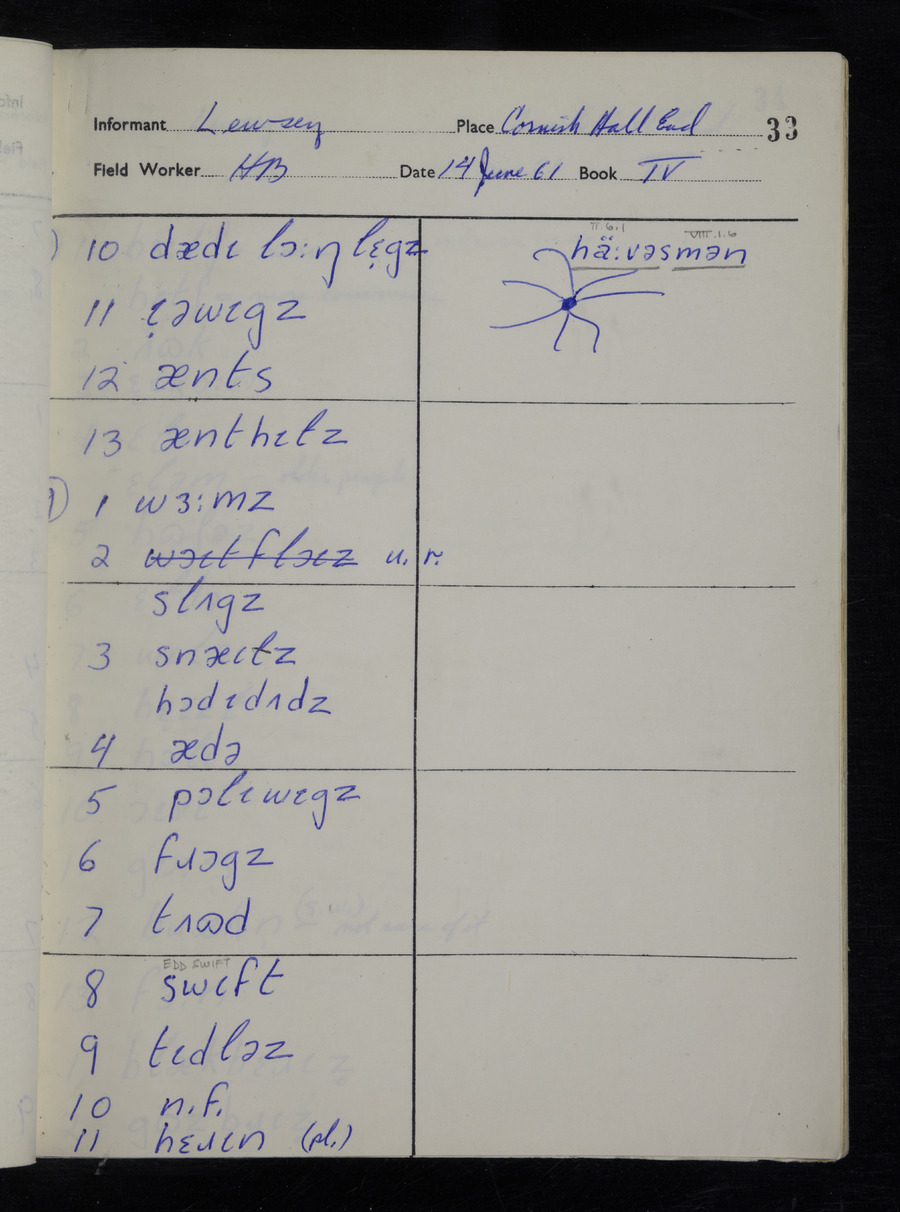 Informant Lewsey Place Cornish Hall End 33
Field Worker HB Date 14 June 61 Book IV
10 dædɩ lɔ:ŋ lɛ̣gz
11 ɩ̣əwɩgz
12 ænts
13 ænthɩlz
1) 1 wɜ:mz
2 wɔɩtflɔɩz u.r.
slʌgz
3 snæɩlz
hɔdɩdɔdz
4 ædə
5 pɔlɩwɩgz
6 fɹɔgz
7 tʌɷd
EDD SWIFT
8 swɩft
9 tɩdləz
10 n.f.
11 hɛɹɩn (pl.)
II.6.1 VIII.1.6
hä:vəsmən